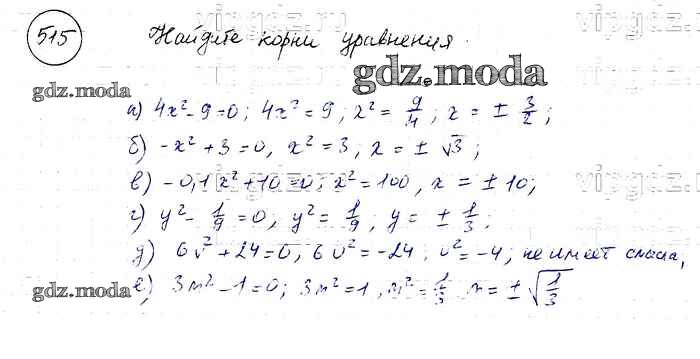 515
Найдите корни уравнения.
gdz.moda
gdz.moda
а) 4x² - 9 = 0; 4x² = 9; x² = 9/4; x = ± 3/2;
б) -x² + 3 = 0, x² = 3; x = ± √3;
в) -0,1x² + 10 = 0; x² = 100, x = ± 10;
г) y² - 1/9 = 0; y² = 1/9; y = ± 1/3;
д) 6v² + 24 = 0; 6v² = -24; v² = -4; не имеет смысла,
е) 3m² - 1 = 0; 3m² = 1, m² = 1/3 m = ± √1/3
gdz.moda
gdz.moda